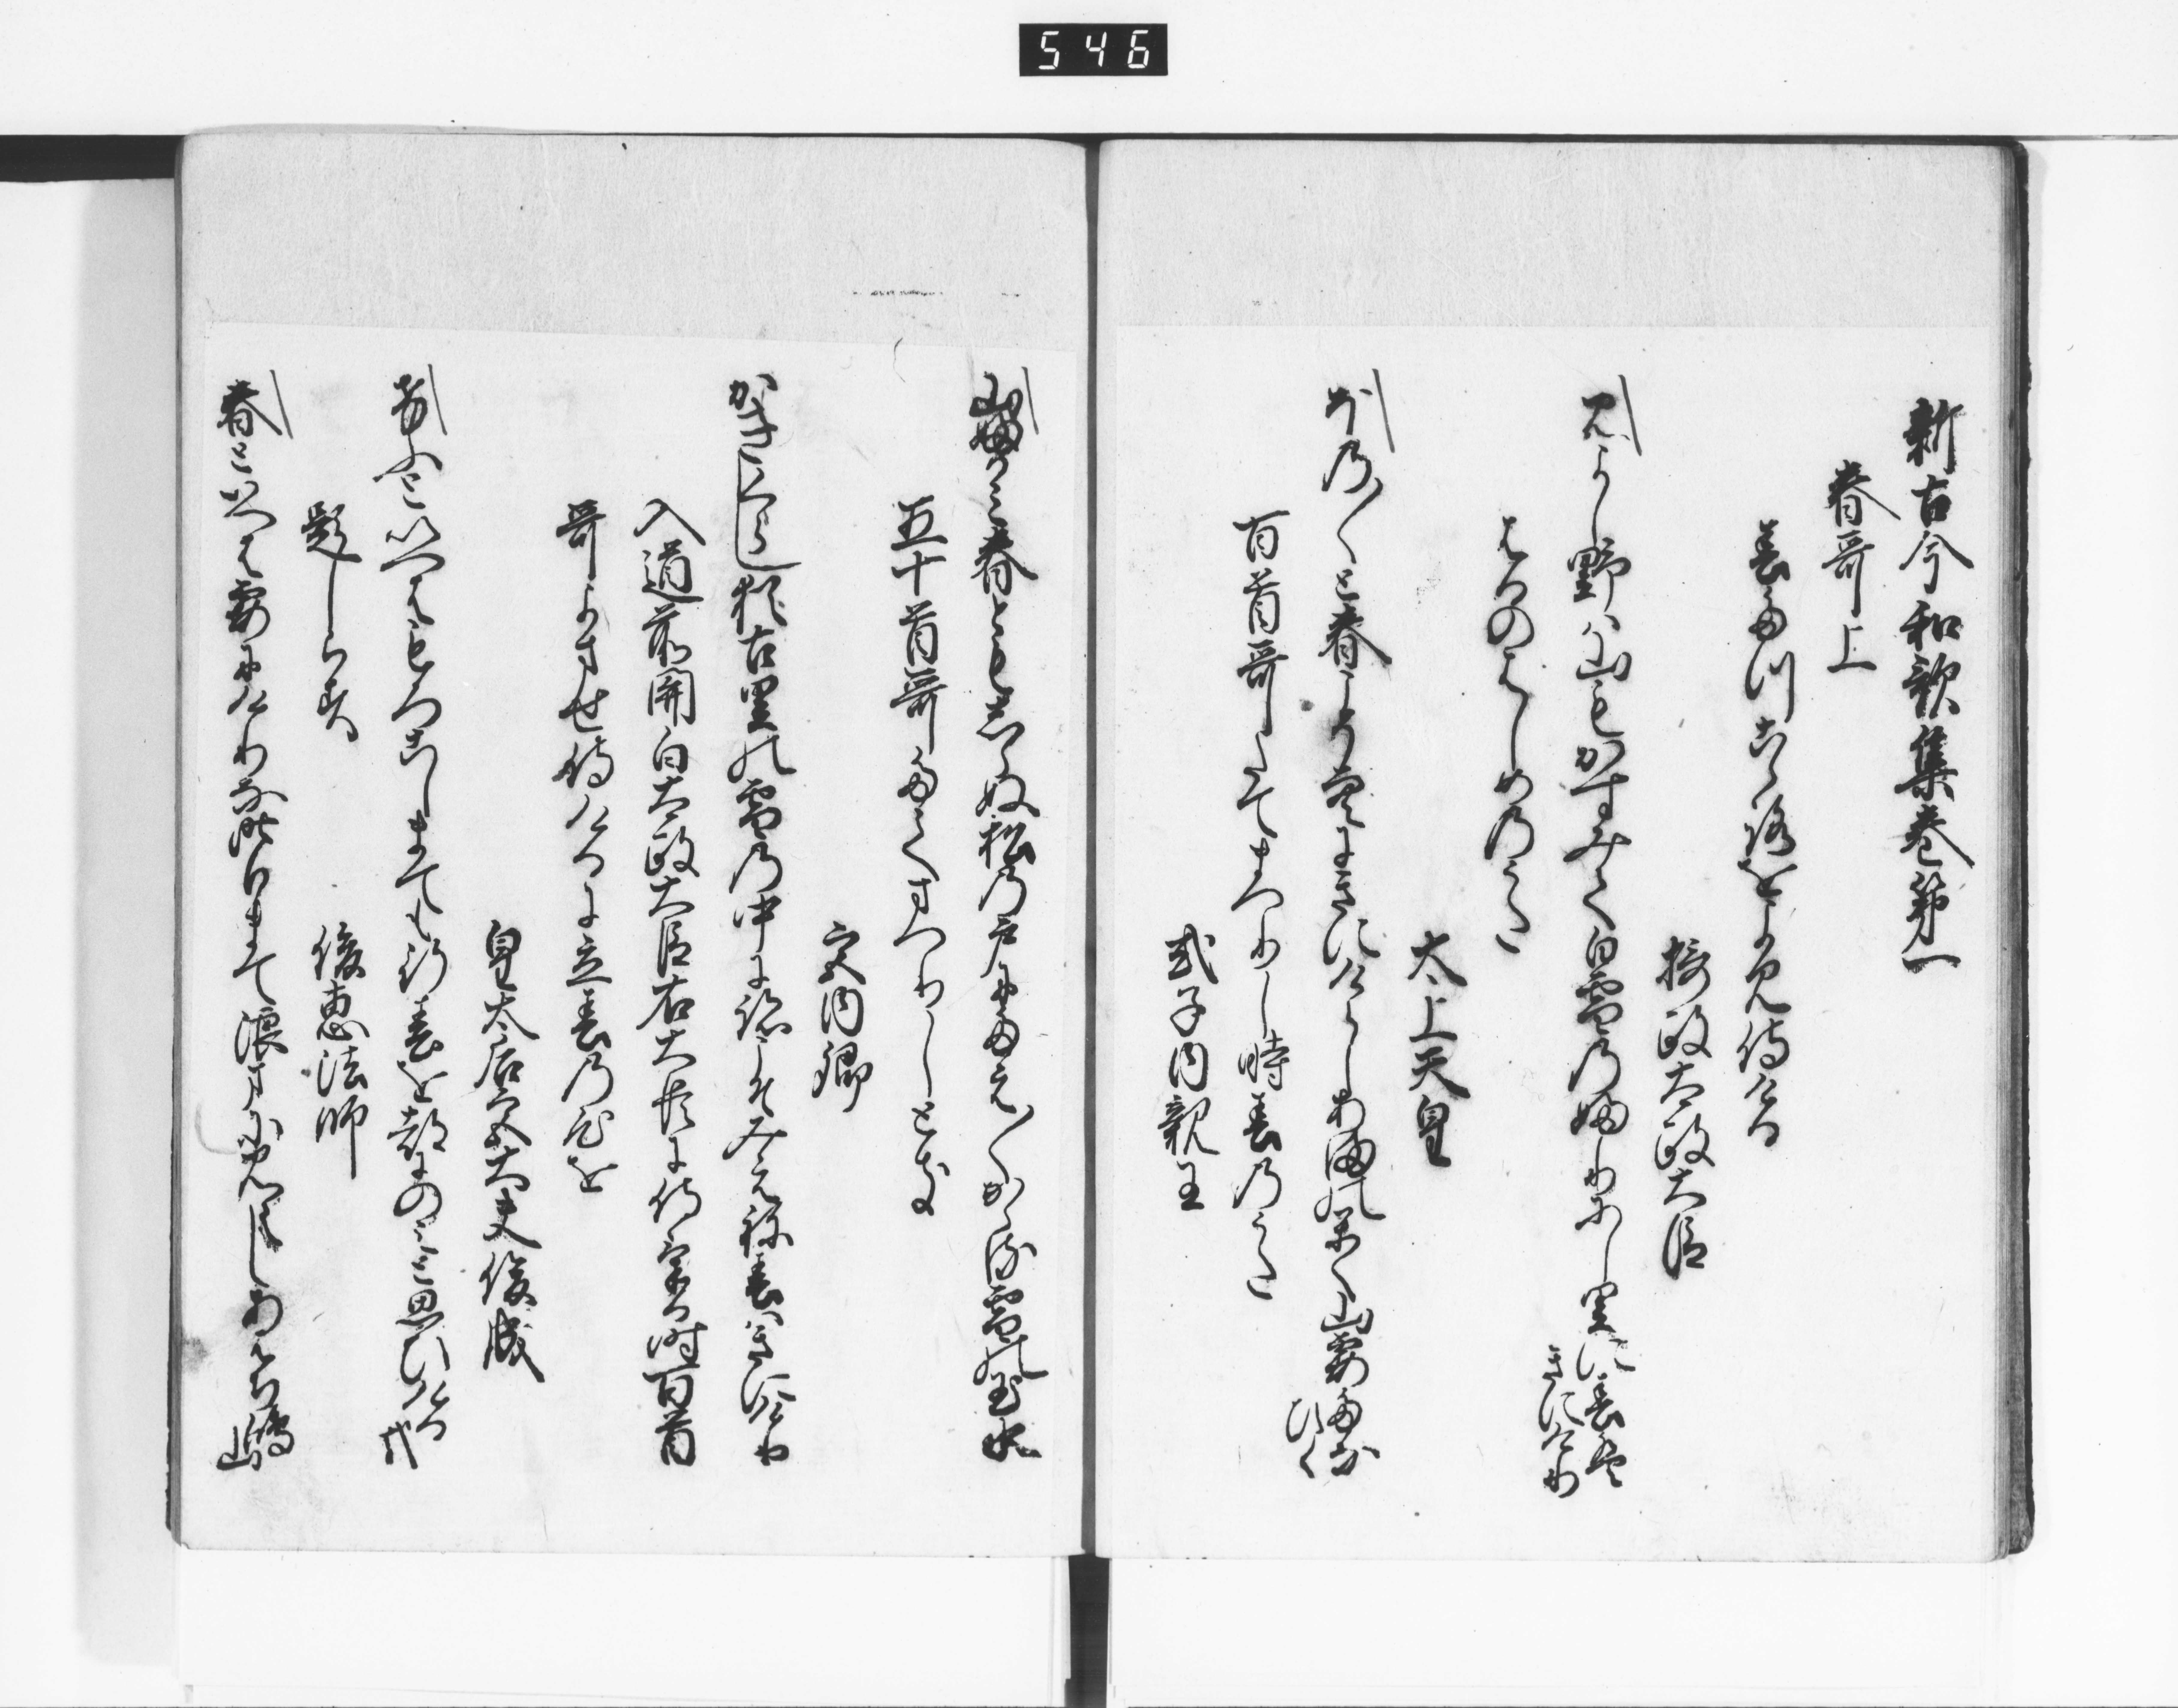 546
新古今和歌集巻第一
春哥上
春たつこゝろをよみ侍ける
摂政太政大臣
みよし野は山もかすみて白雪のふりにし里に春は
きにけり
はるのはしめのうた
太上天皇
ほの〳〵と春こそ空にきにけらしあまのかく山霞たな
ひく
百首哥たてまつりし時春のうた
式子内親王
山ふかみ春ともしらぬ松の戸にたえ〳〵かゝる雪の玉水
五十首哥たてまつりしとき
宮内卿
かきくらし猶古里の雪の中に跡こそみえね春はきにけり
入道前関白太政大臣右大臣に侍ける時百首
哥よませ侍けるに立春の心を
皇太后宮大夫俊成
けふといへはもろこしまても行春を都にのみと思ひける
哉
題しらす
俊恵法師
春といへは霞にけりな昨日まて浪まに見えしあはち嶋
山